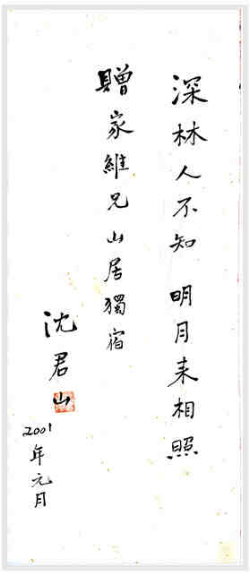 深林人不知 明月來相照
贈家維兄山居獨宿
沈君山
2001年元月